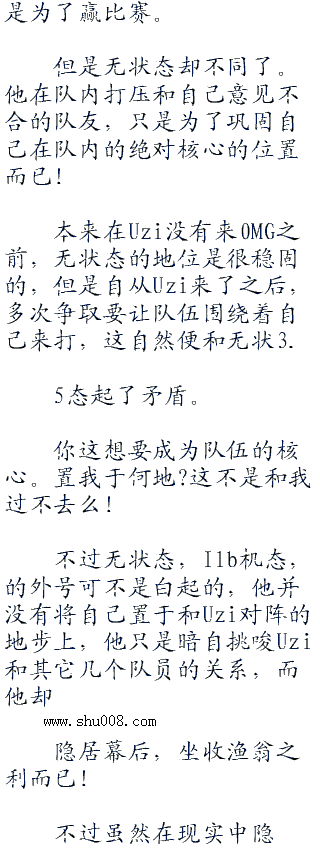 是为了赢比赛。
但是无状态却不同了。
他在队内打压和自己意见不
合的队友，只是为了巩固自
己在队内的绝对核心的位置
而已!
本来在Uzi没有来OMG之
前，无状态的地位是很稳固
的，但是自从Uzi来了之后，
多次争取要让队伍围绕着自
己来打，这自然便和无状3.
5态起了矛盾。
你这想要成为队伍的核
心。置我于何地?这不是和我
过不去么!
不过无状态，Ilb机态，
的外号可不是白起的，他并
没有将自己置于和Uzi对阵的
地步上，他只是暗自挑唆Uzi
和其它几个队员的关系，而
他却
www.shu008.com
隐居幕后，坐收渔翁之
利而已!
不过虽然在现实中隐